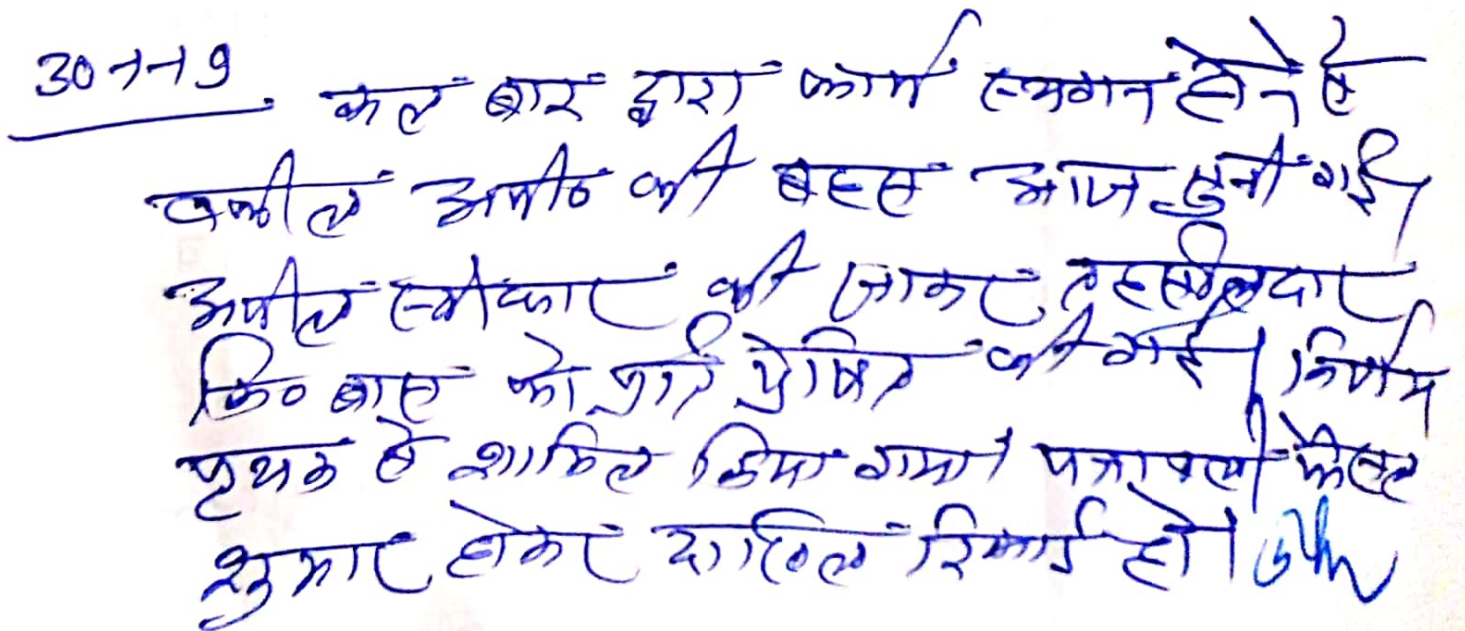 30-1-19 कल बार द्वारा कार्य स्थगन होने से
वकील अपी० की बहस आज सुनी गई।
अपील स्वीकार की जाकर तहसीलदार
कि० बास को प्रति प्रेषित की गई। निर्णय
पृथक से शामिल किया गया। पत्रावली फैसल
शुमार होकर दाखिल रिकार्ड हो।